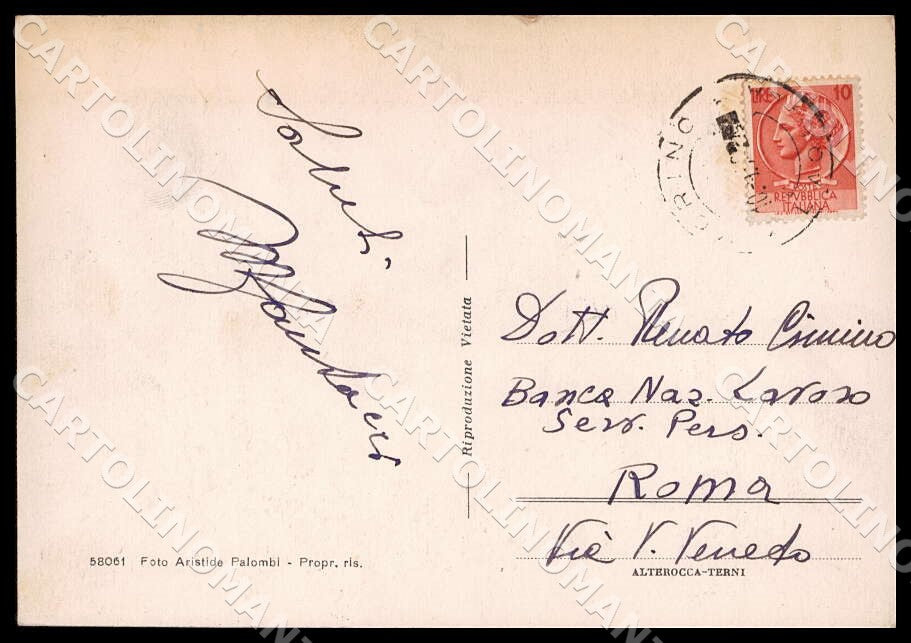 Saluti
LIRE 10
POSTE
REPUBBLICA
ITALIANA
Riproduzione Vietata
Dott. Renato Cimino
Banca Naz. Lavoro
Serv. Pers.
ROMA
Via V. Veneto
58061 Foto Aristide Palombi - Propr. ris.
ALTEROCCA-TERNI
CARTOLINOMANIA